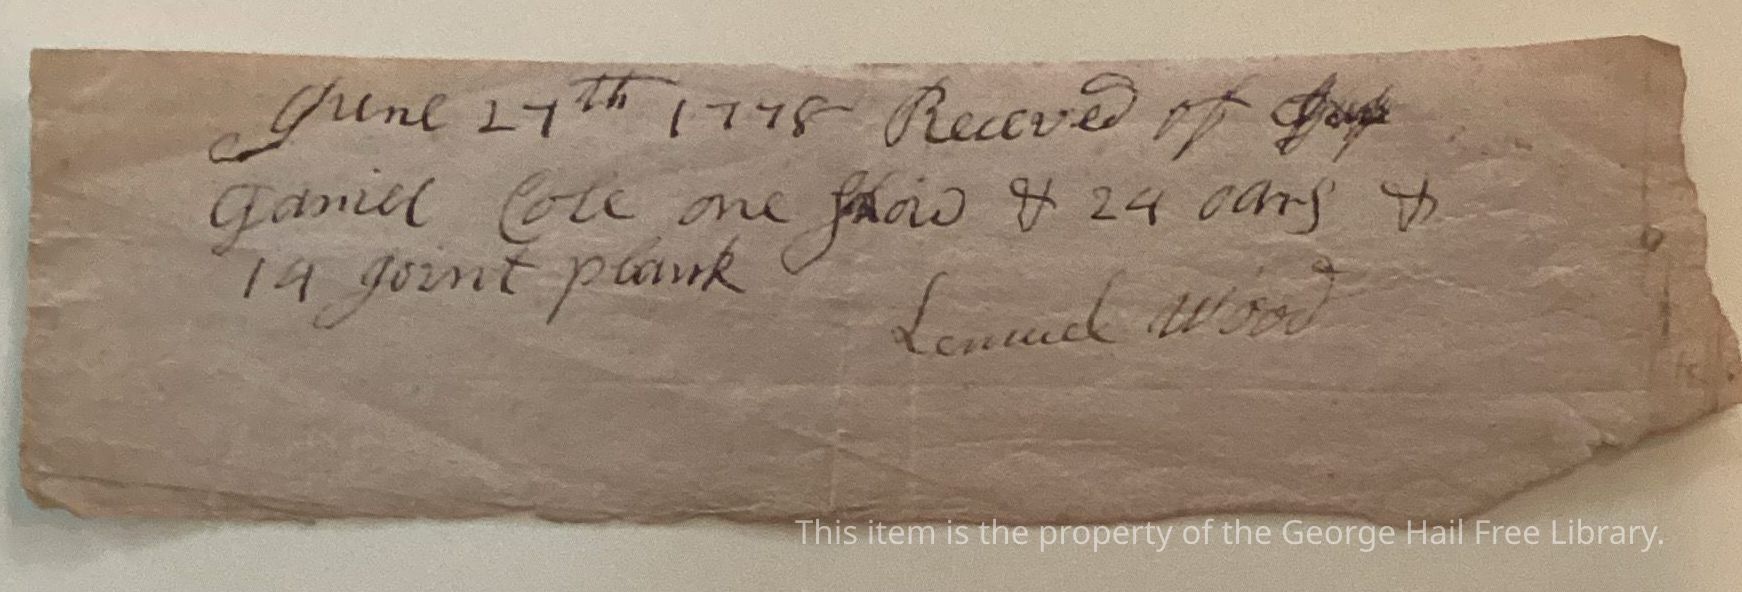 June 27th 1778 Receved of
Daniel Cole one & 24 oars &
14 joint plank
Lemuel Wood
This item is the property of the George Hail Free Library.